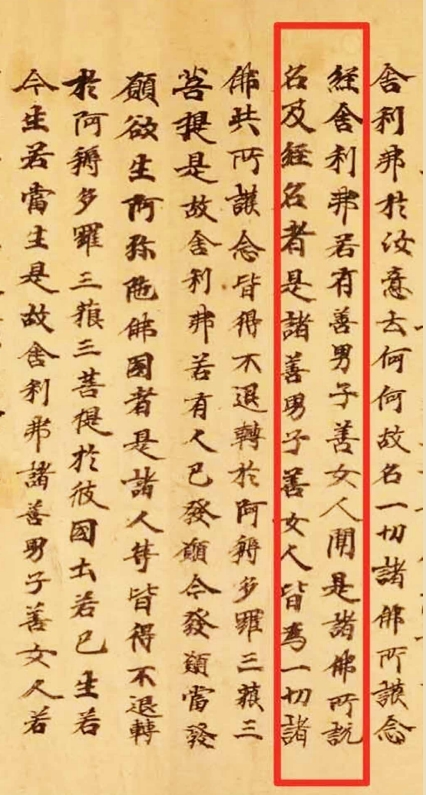 舍利弗於汝意云何何故名一切諸佛所護念
經舍利弗若有善男子善女人聞是諸佛所說
名及經名者是諸善男子善女人皆為一切諸
佛共所護念皆得不退轉於阿耨多羅三藐三
菩提是故舍利弗若有人已發願今發願當發
願欲生阿弥陁佛國者是諸人等皆得不退轉
於阿耨多羅三藐三菩提於彼國土若已生若
今生若當生是故舍利弗諸善男子善女人若